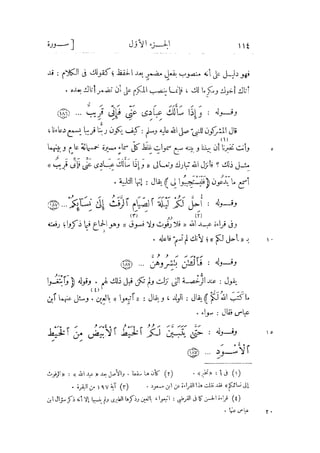 ١١٤ الجزء الأول [ سورة
فهو دليل على أنه منصوب بفعل مضمر بعد الحفظ ؛ كقولك فى الكلام : قد
أتاك أخوك ومكرما لك ، فإنما ينصب المكرم على أن تضمر أتاك بعده .
وقوله : وَإِذَا سَأَلَكَ عِبَادِى عَنِّى فَإِنِّى قَرِيبٌ ... ﴿١٨٦﴾
قال المشركون للنبىّ صلى الله عليه وسلم : كيف يكون ربّنا قريبا يسمع دعاءنا ،
٥ وأنت تخبرنا أن بيننا وبينه سبع سموات غلظ كلّ سماء مسيرة خمسمائة عام وبينهما
مثل ذلك ؟ فأنزل الله تبارك وتعالى « وَإِذَا سَأَلَكَ عِبَادِى عَنِّى فَإِنِّى قَرِيبٌ »
أسمع ما يدعون ( فَلْيَسْتَجِيبُوا لِى ) يقال : إنها التلبية .
وقوله : أُحِلَّ لَكُمْ لَيْلَةَ الصِّيَامِ الرَّفَثُ إِلَىٰ نِسَائِكُمْ ... ﴿١٨٧﴾
وفى قراءة عبد الله « فلا رُفُوثَ ولا فسوق » وهو الجماع فيما ذكروا ؛ رفعته
١٠ بـ «ـأحل لكم » ؛ لأنك لم تسمّ فاعله .
وقوله : فَٱلْـَٰٔنَ بَٰشِرُوهُنَّ ... ﴿١٨٧﴾
يقول : عند الرُّخصة التى نزلت ولم تكن قبل ذلك لهم . وقوله ( وَٱبْتَغُوا
مَا كَتَبَ اللهُ لَكُمْ ) يقال : الولد ، ويقال : « اتبعوا » بالعين . وسئل عنهما ابن
عباس فقال : سواء .
١٥ وقوله : حَتَّىٰ يَتَبَيَّنَ لَكُمُ الْخَيْطُ الْأَبْيَضُ مِنَ الْخَيْطِ
الْأَسْوَدِ ... ﴿١٨٧﴾
(١) فى أ : « تخبر » . (٢) كأن هنا سقطا . والأصل بعد « عبد الله » : « الرفوث
إلى نسائكم » فقد نقلت هذا القراءة عن ابن مسعود . (٣) آية ١٩٧ من البقرة .
(٤) قراءة الحسن كما فى القرطبى : اتبعوا ، بالعين وذكرها الطبرى ولم ينسبها إلا أنه ذكر سؤال ابن
٢٠ عباس عنها .